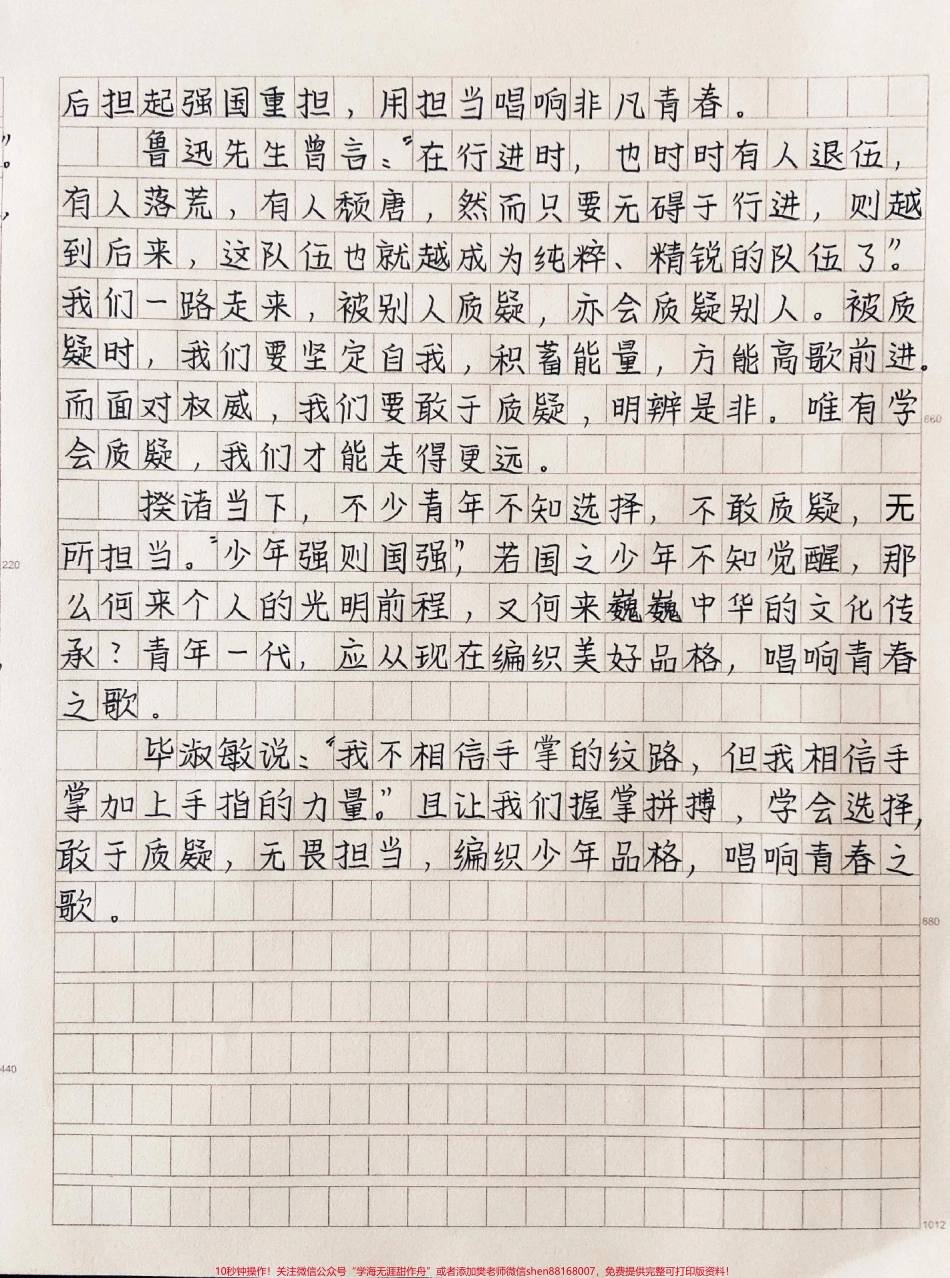 后担起强国重担，用担当唱响非凡青春。
鲁迅先生曾言：“在行进时，也时时有人退伍，
有人落荒，有人颓唐，然而只要无碍于行进，则越
到后来，这队伍也就越成为纯粹、精锐的队伍了”。
我们一路走来，被别人质疑，亦会质疑别人。被质
疑时，我们要坚定自我，积蓄能量，方能高歌前进。
而面对权威，我们要敢于质疑，明辨是非。唯有学
660
会质疑，我们才能走得更远。
揆诸当下，不少青年不知选择，不敢质疑，无
所担当。“少年强则国强”，若国之少年不知觉醒，那
220
么何来个人的光明前程，又何来巍巍中华的文化传
承？青年一代，应从现在编织美好品格，唱响青春
之歌。
毕淑敏说：“我不相信手掌的纹路，但我相信手
掌加上手指的力量。”且让我们握掌拼搏，学会选择，
敢于质疑，无畏担当，编织少年品格，唱响青春之
歌。
880
440
1012
10秒钟操作！关注微信公众号“学海无涯甜作舟”或者添加樊老师微信shen88168007，免费提供完整可打印版资料！